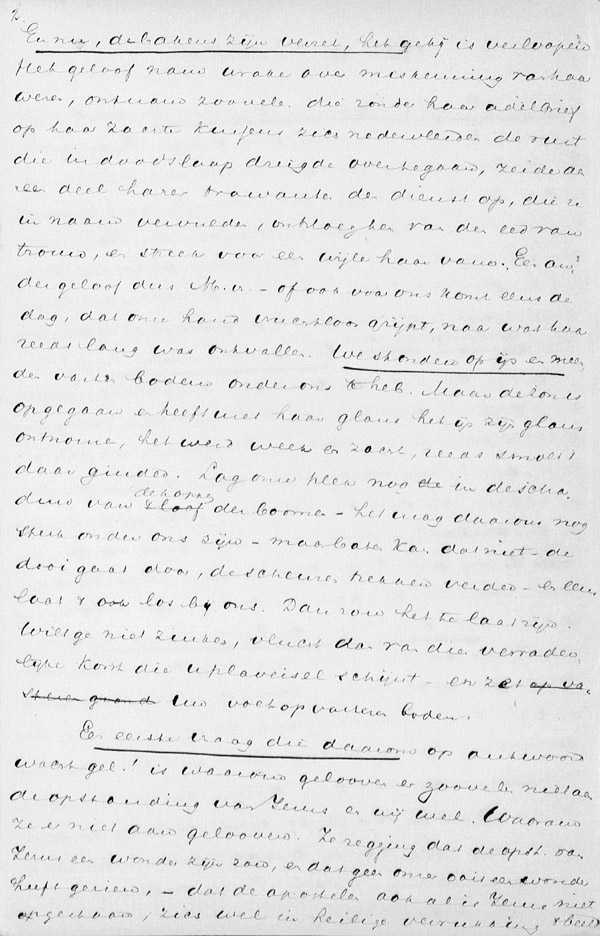 2.
En nu, de bakens zijn verzet, het getij is verloopen
Het geloof nam wrake over miskenning
weren, ontnam zoovele die zonder haar adelbrief
op haar zachte kussens zich nedervleiden de rust
die in doodslaap dreigde over te gaan, zeide aan
een deel harer trawanten de dienst op, die
in naam vervulden, ontsloeg hen van den eed van
trouw, en streek voor een wijle haar vaan. En an-
der geloof dus M. v. – of ook voor ons komt eens de
dag, dat onze hand vruchtloos grijpt, naar wat haar
reeds lang was ontvallen. We stonden op ijs en meen
den vasten bodem onder ons te heb. Maar de zon is
opgegaan en heeft met haar glans het ijs zijn glans
ontnomen, het werd week en zacht, reeds smolt 't
daar ginder. Lag onze plek nog in de scha-
duw van de toppen der boomen – het mag daarom nog
sterk onder ons zijn – maar baten kan dat niet – de
dooi gaat door, de scheuren trekken verder – en eens
laat 't ook los bij ons. Dan zou het te laat zijn.
Wilt ge niet zinken, vlucht dan van die verrader-
lijke korst die u plaveisel schijnt – en zet op va-
steren grond uw voet op vasteren bodem.
En eerste vraag die daarom op antwoord
wacht gel.! is waarom gelooven er zoovelen niet aan
de opstanding van Jezus en wij wel. Waarom
ze er niet aan gelooven. Ze zegging dat de opst. van
Jezus een wonder zijn zou, en dat geen onzer ooit een wonder
heeft gezien, – dat de apostelen ook al is Jezus niet
opgestaan, zich wel in heilige verrukking